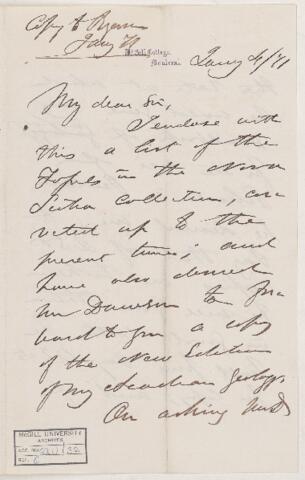 Copy to Ryerson
Jany
McGill College,
Montreal
Jany 4/71
My dear Sir,
I enclose with
this a list of the
Fossils in the Nova
Scotia Collection, cor
rected up to the
present time; and
have also desired
Mr Dawson to for
ward to you a copy
of the New Edition
of my Acadian Geology.
On asking
McGILL UNIVERSITY
ARCHIVES
ACC. NO.
REF.